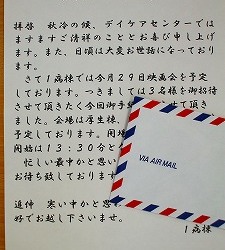 拝啓 秋冷の候、デイケアセンターでは
ますますご清祥のこととお喜び申し上げ
ます。また、日頃は大変お世話になっており
ます。
さて1病棟では今月29日映画会を予定
しております。つきましては3名様を御招待
させて頂きたく今回御手
させて頂き
ました。会場は厚生棟、
予定しております。開場
開始は13:30分と
忙しい最中かと思い
お待ち致しております。
VIA AIR MAIL
追伸 寒い中かと思
好でお越し下さいませ。
1病棟